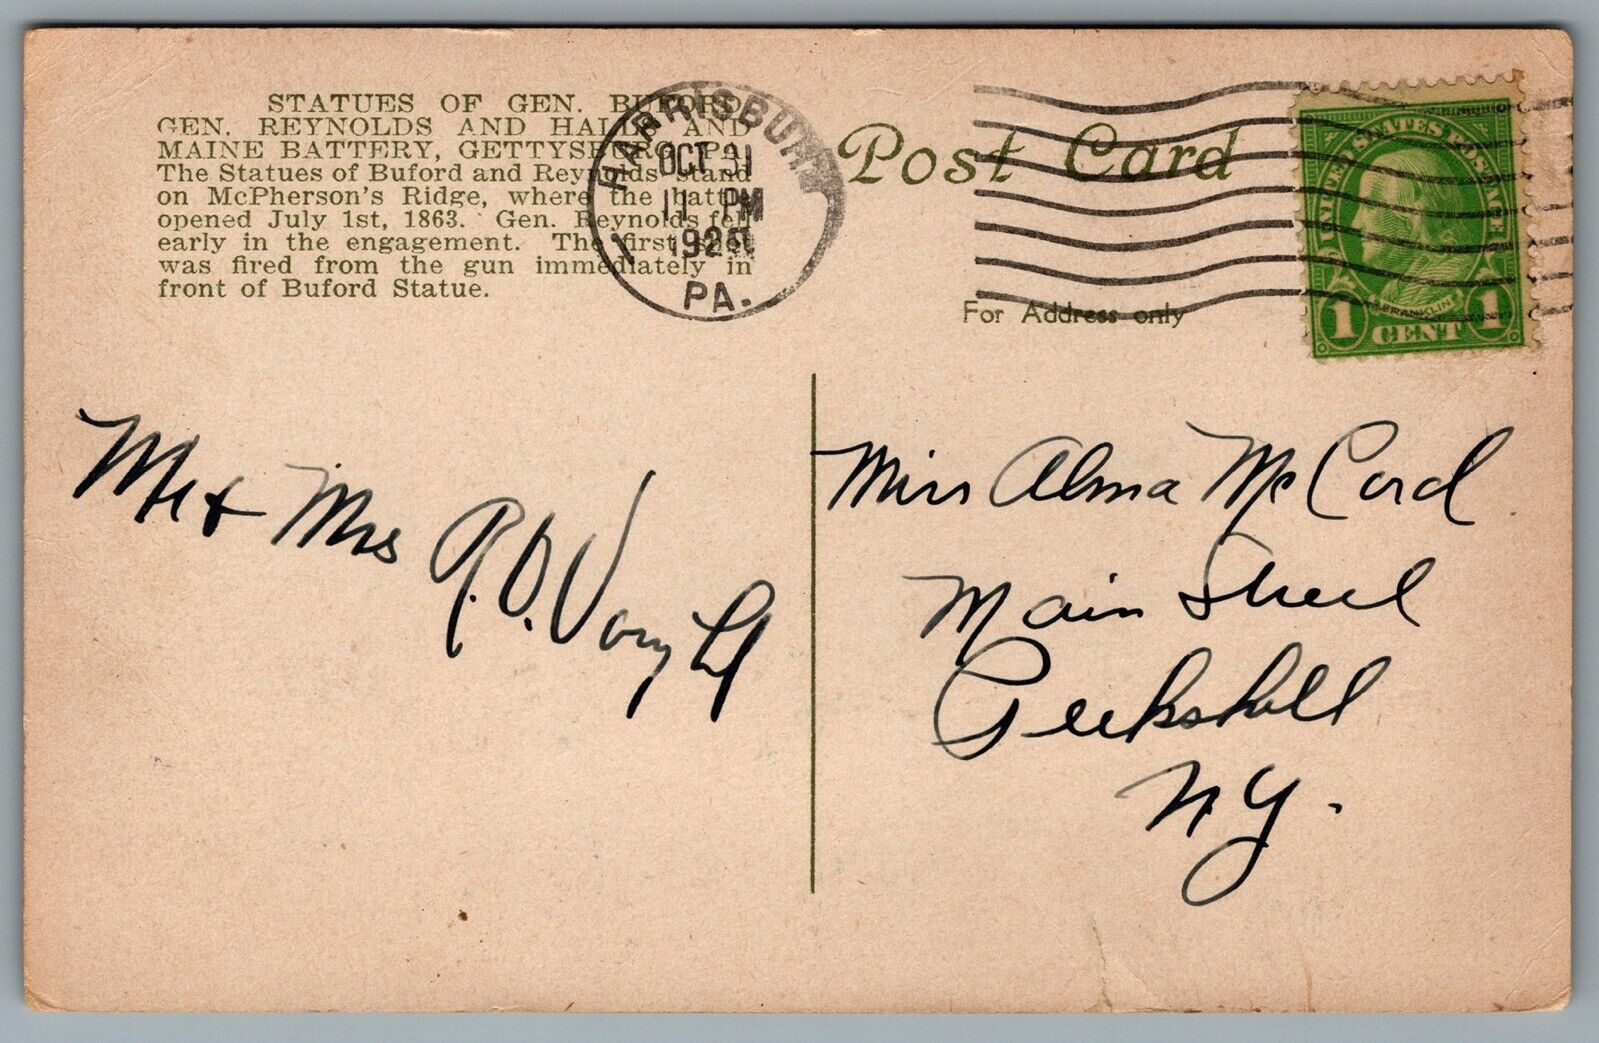 STATUES OF GEN. BUFORD,
GEN. REYNOLDS AND HALL'S AND
MAINE BATTERY, GETTYSBURG, PA.
The Statues of Buford and Reynolds stand
on McPherson's Ridge, where the battle
opened July 1st, 1863. Gen. Reynolds fell
early in the engagement. The first shot
was fired from the gun immediately in
front of Buford Statue.
HARRISBURG
OCT 31
11 PM
PA.
1
Post Card
For Address only
UNITED STATES POSTAGE
FRANKLIN
1 CENT 1
Mr & Mrs R. D.
Miss Alma McCord
Main Street
Peekskill
N.Y.